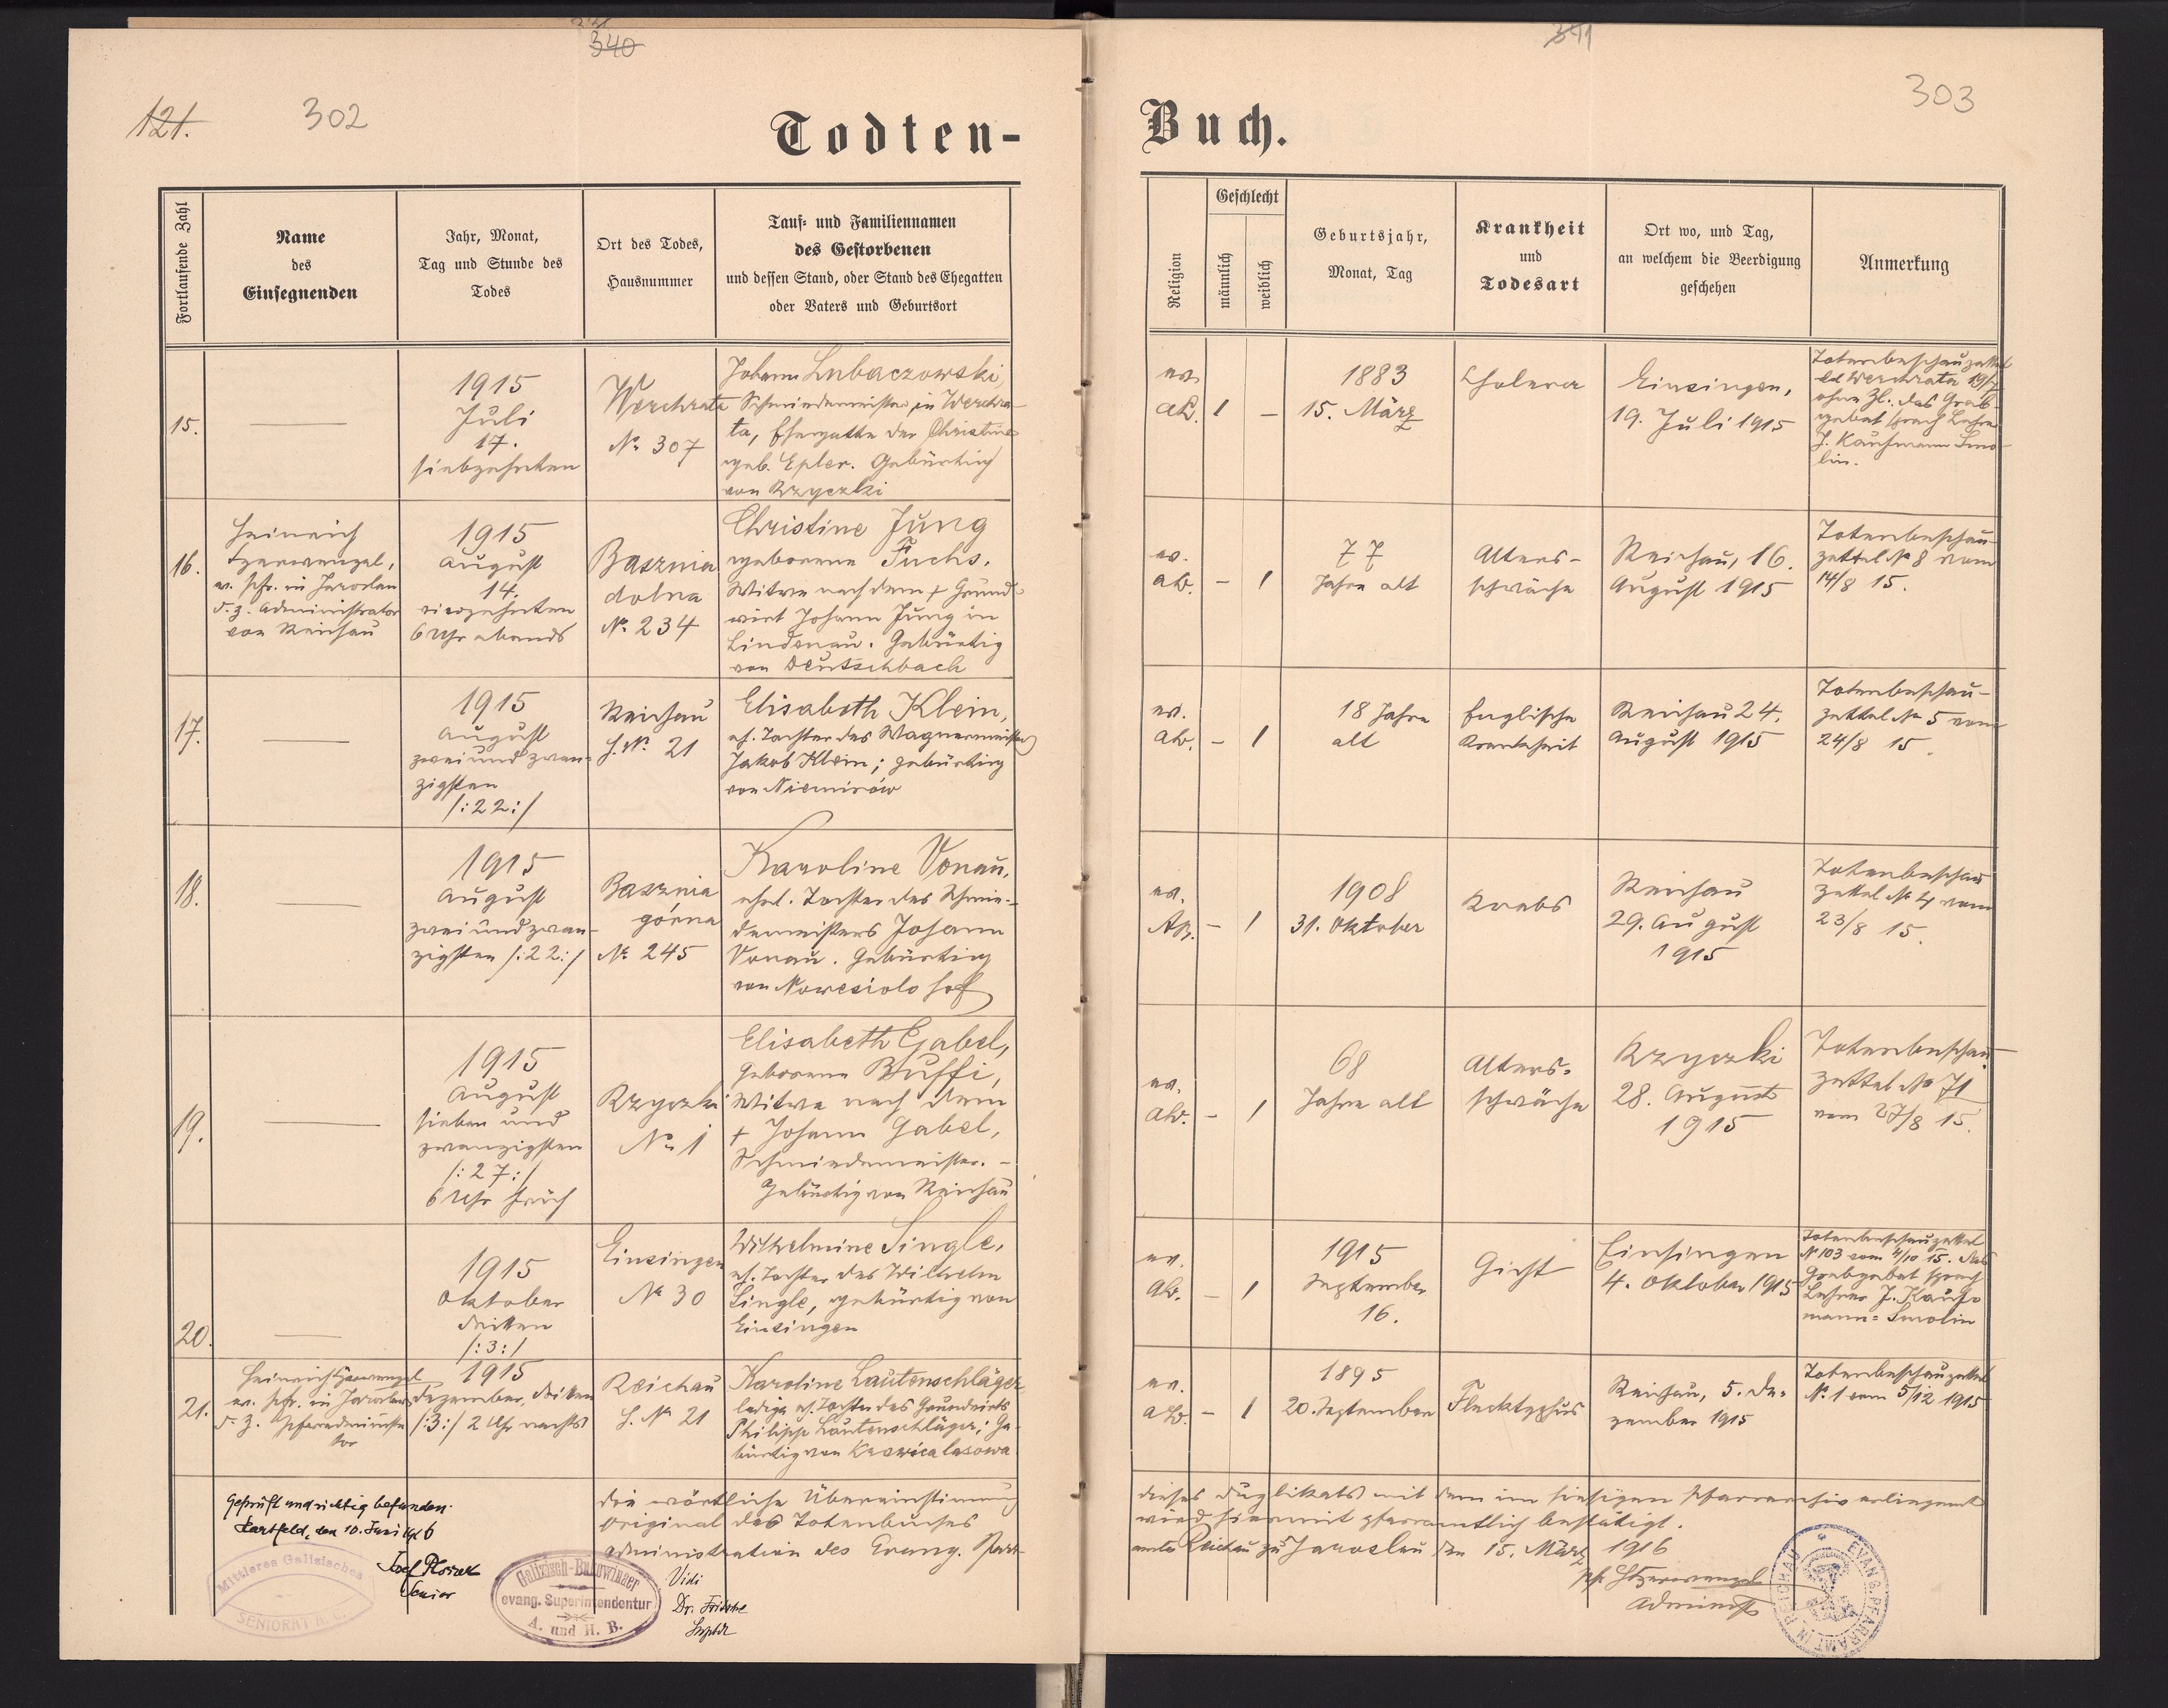 340
341
121.
302
303
Todten-
Buch.
Fortlaufende Zahl
Name
des
Einsegnenden
Jahr, Monat,
Tag und Stunde des
Todes
Ort des Todes,
Hausnummer
Tauf- und Familiennamen
des Gestorbenen
und dessen Stand, oder Stand des Ehegatten
oder Vaters und Geburtsort
Religion
Geschlecht
männlich
weiblich
Geburtsjahr,
Monat, Tag
Krankheit
und
Todesart
Ort wo, und Tag,
an welchem die Beerdigung
geschehen
Anmerkung
15.
1915
Juli
17.
siebzehnten
Werchrata
No 307
Johann Lubaczowski,
Schmiedemeister in Werchra-
ta, Ehegatte der Christine
geb. Epler. Gebürtig
von Rzyczki
ev.
1
–
1883
15. März
Cholera
Einsingen,
19. Juli 1915
Totenbeschauzettel
Werchrata 19/7
ohne Zl. das Grab-
gebet sprach Lehrer
J. Kaufmann Smo-
lin.
16.
Heinrich
ev. Pfr. in Jaroslau
d. z. Administrator
von Reichau
1915
August
14.
vierzehnten
6 Uhr abends
Basznia
dolna
No 234
Christine Jung
geborene Fuchs.
Witwe nach dem + Grund-
wirt Johann Jung in
Lindenau. Gebürtig
von Deutschbach
ev.
ab.
–
1
77
Jahre alt
Alters-
schwäche
Reichau, 16.
August 1915
Totenbeschau-
zettel No 8 vom
14/8 15.
17.
1915
August
zweiundzwan-
zigsten
/:22:/
Reichau
H. No 21
Elisabeth Klein,
eh. Tochter des Wagnermeisters
Jakob Klein; gebürtig
von Niemirów
ev.
ab.
–
1
18 Jahre
alt
Englische
Krankheit
Reichau 24.
August 1915
Totenbeschau-
zettel No 5 vom
24/8 15.
18.
1915
August
zweiundzwan-
zigsten /:22:/
Basznia
górna
No 245
Karoline Vonau,
ehel. Tochter des Schmie-
demeisters Johann
Vonau. Gebürtig
von Nowesiolo hof
ev.
–
1
1908
31. Oktober
Krebs
Reichau
29. August
1915
Totenbeschau
zettel No 4 vom
23/8 15.
19.
1915
August
sieben und
zwanzigsten
/:27:/
6 Uhr früh
Rzyczki
No 1
Elisabeth Gabel,
geborene Buffi,
Witwe nach dem
+ Johann Gabel,
Schmiedemeister. –
Gebürtig von Reichau
ev.
ab.
–
1
68
Jahre alt
Alters-
schwäche
Rzyczki
28. August
1915
Totenbeschau-
zettel No 71
vom 27/8 15.
20.
1915
Oktober
dritten
/:3:/
Einsingen
No 30
Wilhelmine Single,
eh. Tochter des Wilhelm
Single, gebürtig von
Einsingen
ev.
ab.
–
1
1915
September
16.
Gicht
Einsingen
4. Oktober 1915
Totenbeschauzettel
No 103 vom 4/10 15. das
Grabgebet sprach
Lehrer J. Kauf-
mann-Smolin
21.
Heinrich
ev. Pfr. in Jaroslau
d. z. Pfarradministra-
tor
1915
Dezember, dritten
/:3:/ 2 Uhr nachts
Reichau
H. No 21
Karoline Lautenschläger,
ledige eh. Tochter des Grundwirts
Philipp Lautenschläger; Ge-
bürtig von Krowica lasowa
ev.
ab.
–
1
1895
20. September
Flecktyphus
Reichau, 5. De-
zember 1915
Totenbeschauzettel
No 1 vom 5/12 1915
Geprüft und richtig befunden.
den 10. Juni 1916
Senior
Mittleres Galizisches
SENIORAT A. C.
Galizisch-Bukowinaer
evang. Superintendentur
A. und H. B.
Vidi
Dr. Fritsche
Suptdt
Die wörtliche Übereinstimmung dieses Duplikats mit dem im hiesigen Pfarrarchiv erliegenden
Original des Totenbuches wird hiermit pfarramtlich bestätigt.
Administration des Evang. Pfarr-amts Reichau zu Jaroslau den 15. März 1916
EVANG. PFARRAMT IN REICHAU